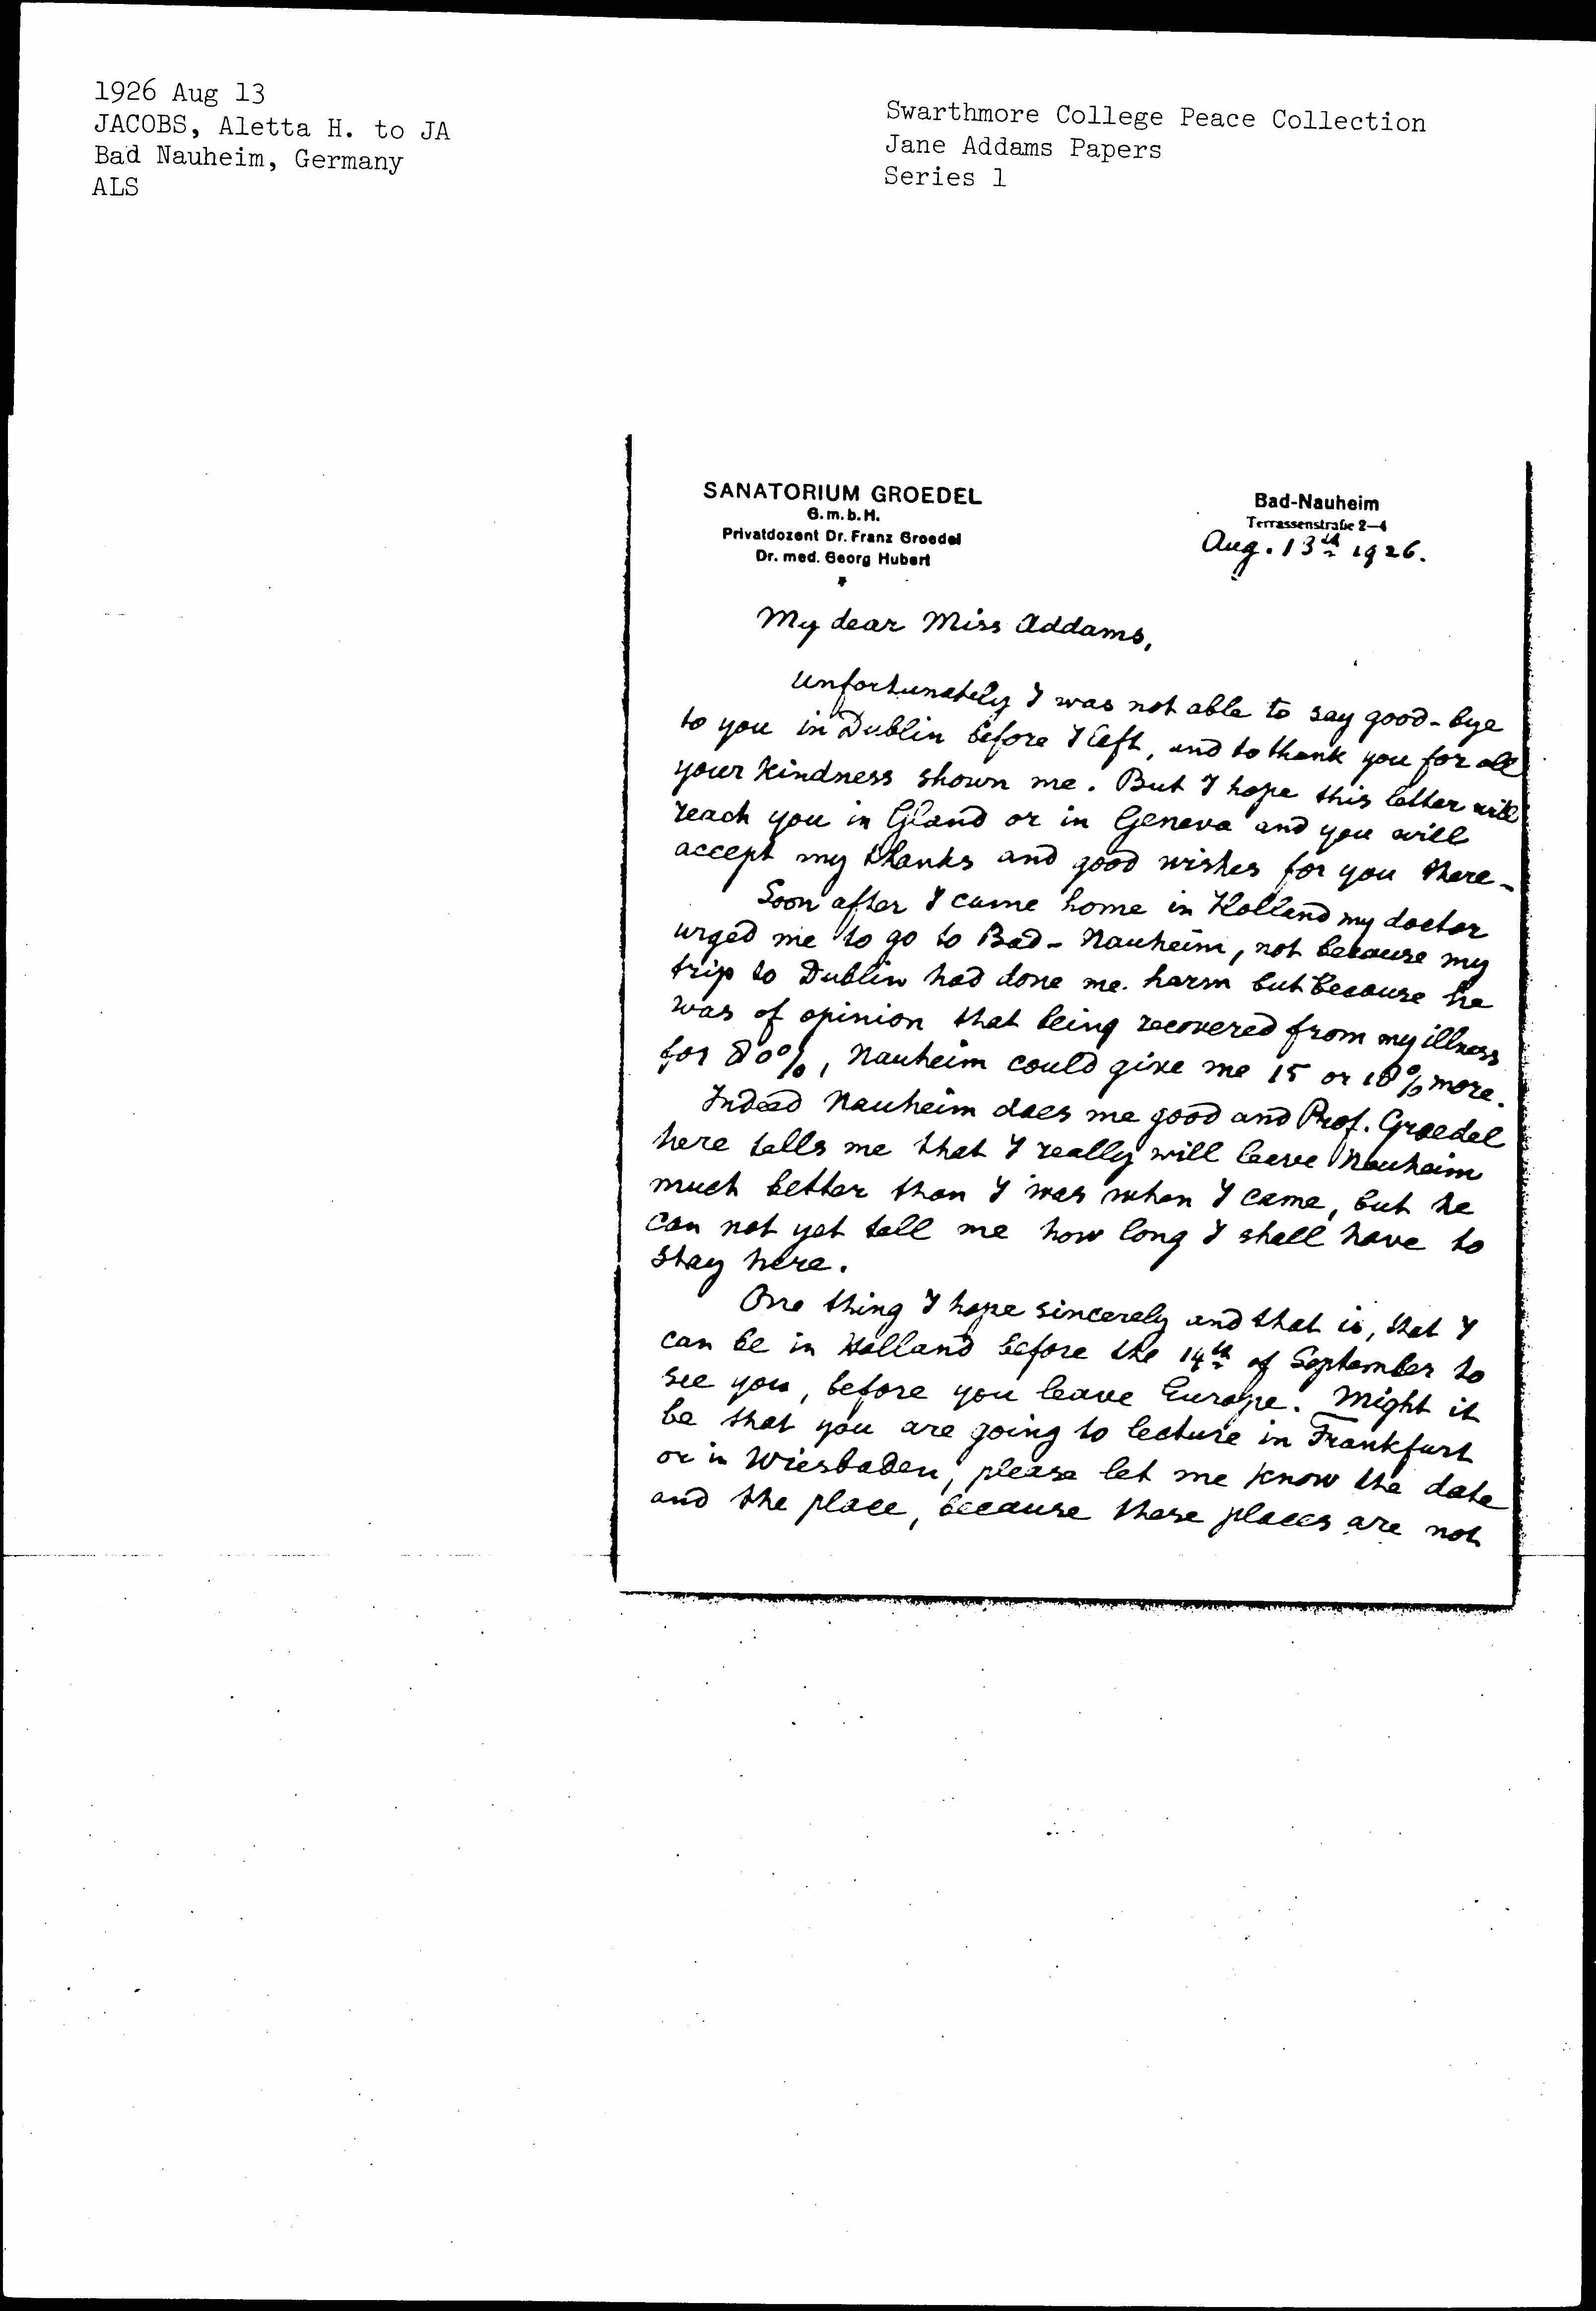 1926 Aug 13
JACOBS, Aletta H. to JA
Bad Nauheim, Germany
ALS
Swarthmore College Peace Collection
Jane Addams Papers
Series 1
SANATORIUM GROEDEL
G.m.b.H.
Privatdozent Dr. Franz Groedel
Dr. med. Georg Hubert
Bad-Nauheim
Terrassenstraße 2—4
Aug. 13th 1926.
My dear Miss Addams,
Unfortunately I was not able to say good-bye
to you in Dublin before I left, and to thank you for all
your kindness shown me. But I hope this letter will
reach you in Gland or in Geneva and you will
accept my thanks and good wishes for you there-
Soon after I came home in Holland my doctor
urged me to go to Bad-Nauheim, not because my
trip to Dublin had done me harm but because he
was of opinion that being recovered from my illness
for 80%, Nauheim could give me 15 or 18% more.
Indeed Nauheim does me good and Prof. Groedel
here tells me that I really will leave Nauheim
much better than I was when I came, but he
can not yet tell me how long I shall have to
stay here.
One thing I hope sincerely and that is, that I
can be in Holland before the 14th of September to
see you, before you leave Europe. Might it
be that you are going to lecture in Frankfurt
or in Wiesbaden, please let me know the date
and the place, because these places are not